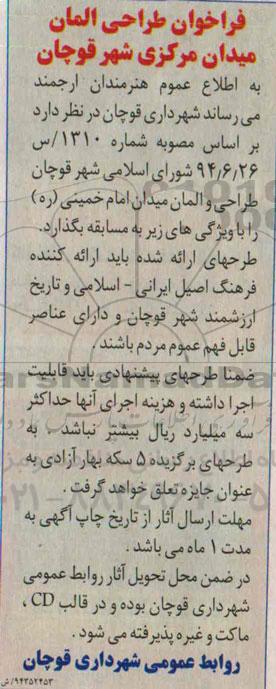 فراخوان طراحی المان
میدان مرکزی شهر قوچان
به اطلاع عموم هنرمندان ارجمند
می رساند شهرداری قوچان در نظر دارد
بر اساس مصوبه شماره ۱۳۱۰/س
۹۴٫۶٫۲۶ شورای اسلامی شهر قوچان
طراحی و المان میدان امام خمینی (ره)
را با ویژگی های زیر به مسابقه بگذارد.
طرحهای ارائه شده باید ارائه کننده
فرهنگ اصیل ایرانی - اسلامی و تاریخ
ارزشمند شهر قوچان و دارای عناصر
قابل فهم عموم مردم باشند .
ضمنا طرحهای پیشنهادی باید قابلیت
اجرا داشته و هزینه اجرای آنها حداکثر
سه میلیارد ریال بیشتر نباشد . به
طرحهای برگزیده ۵ سکه بهار آزادی به
عنوان جایزه تعلق خواهد گرفت .
مهلت ارسال آثار از تاریخ چاپ آگهی به
مدت ۱ ماه می باشد .
در ضمن محل تحویل آثار روابط عمومی
شهرداری قوچان بوده و در قالب CD ،
ماکت و غیره پذیرفته می شود .
روابط عمومی شهرداری قوچان
۹۴۳۵۲۴۵۳/ش